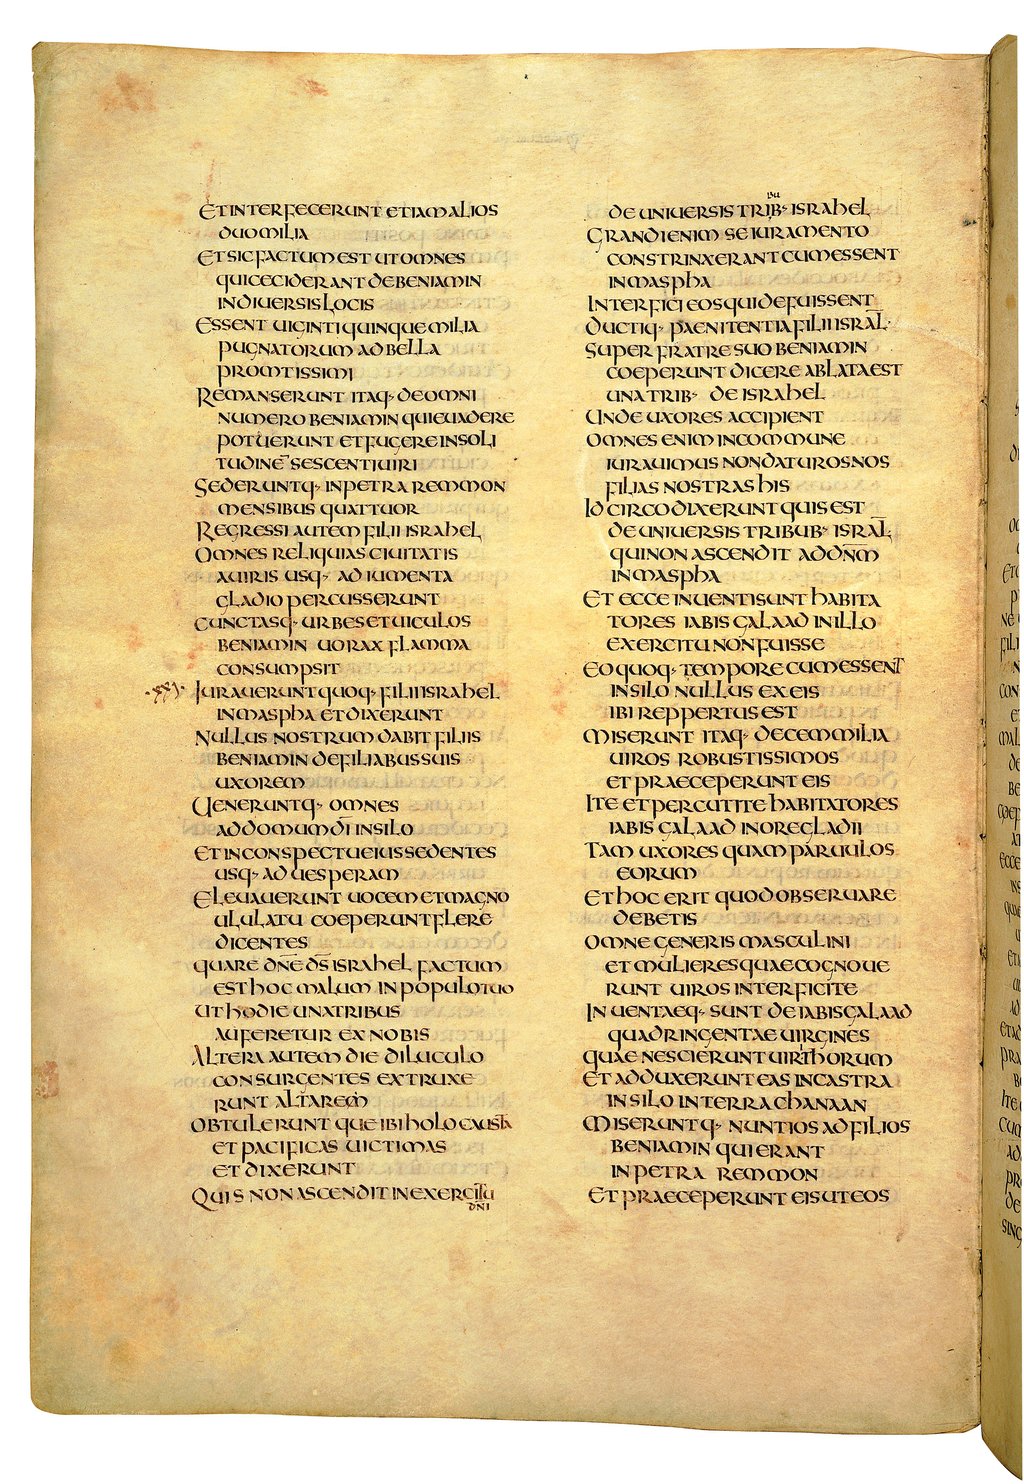 ET INTERFECERUNT ET IAM ALIOS
DUO MILIA
ET SIC FACTUM EST UT OMNES
QUI CECIDERANT DE BENIAMIN
IN DIUERSIS LOCIS
ESSENT UIGINTI QUINQUE MILIA
PUGNATORUM AD BELLA
PROMTISSIMI
REMANSERUNT ITAQ· DE OMNI
NUMERO BENIAMIN QUI EUADERE
POTUERUNT ET FUGERE IN SOLI
TUDINE SESCENTI UIRI
SEDERUNTQ· IN PETRA REMMON
MENSIBUS QUATTUOR
REGRESSI AUTEM FILII ISRAHEL
OMNES RELIQUIAS CIUITATIS
A UIRIS USQ· AD IUMENTA
GLADIO PERCUSSERUNT
CUNCTASQ· URBES ET UICULOS
BENIAMIN UORAX FLAMMA
CONSUMPSIT
·XXI· IURAUERUNT QUOQ· FILII ISRAHEL
IN MASPHA ET DIXERUNT
NULLUS NOSTRUM DABIT FILIIS
BENIAMIN DE FILIABUS SUIS
UXOREM
UENERUNTQ· OMNES
AD DOMUM D̄I IN SILO
ET IN CONSPECTU EIUS SEDENTES
USQ· AD UESPERAM
ELEUAUERUNT UOCEM ET MAGNO
ULULATU COEPERUNT FLERE
DICENTES
QUARE DN̄E D̄S ISRAHEL FACTUM
EST HOC MALUM IN POPULO TUO
UT HODIE UNA TRIBUS
AUFERETUR EX NOBIS
ALTERA AUTEM DIE DILUCULO
CONSURGENTES EXTRUXE
RUNT ALTAREM
OBTULERUNTQUE IBI HOLOCAUSTA
ET PACIFICAS UICTIMAS
ET DIXERUNT
QUIS NON ASCENDIT IN EXERCITU
DNI
DE UNIUERSIS TRIB· ISRAHEL
GRANDI ENIM SE IURAMENTO
CONSTRINXERANT CUM ESSENT
IN MASPHA
INTERFICI EOS QUI DEFUISSENT
DUCTIQ· PAENITENTIA FILII ISRAL̄·
SUPER FRATRE SUO BENIAMIN
COEPERUNT DICERE ABLATA EST
UNA TRIB· DE ISRAHEL
UNDE UXORES ACCIPIENT
OMNES ENIM IN COMMUNE
IURAUIMUS NON DATUROS NOS
FILIAS NOSTRAS HIS
IDCIRCO DIXERUNT QUIS EST
DE UNIUERSIS TRIBUB· ISRAL̄
QUI NON ASCENDIT AD DN̄M
IN MASPHA
ET ECCE INUENTI SUNT HABITA
TORES IABIS GALAAD IN ILLO
EXERCITU NON FUISSE
EO QUOQ· TEMPORE CUM ESSENT
IN SILO NULLUS EX EIS
IBI REPPERTUS EST
MISERUNT ITAQ· DECEM MILIA
UIROS ROBUSTISSIMOS
ET PRAECEPERUNT EIS
ITE ET PERCUTITE HABITATORES
IABIS GALAAD IN ORE GLADII
TAM UXORES QUAM PARUULOS
EORUM
ET HOC ERIT QUOD OBSERUARE
DEBETIS
OMNE GENERIS MASCULINI
ET MULIERES QUAE COGNOUE
RUNT UIROS INTERFICITE
INUENTAEQ· SUNT DE IABIS GALAAD
QUADRINGENTAE UIRGINES
QUAE NESCIERUNT UIRI THORUM
ET ADDUXERUNT EAS IN CASTRA
IN SILO IN TERRA CHANAAN
MISERUNTQ· NUNTIOS AD FILIOS
BENIAMIN QUI ERANT
IN PETRA REMMON
ET PRAECEPERUNT EIS UT EOS